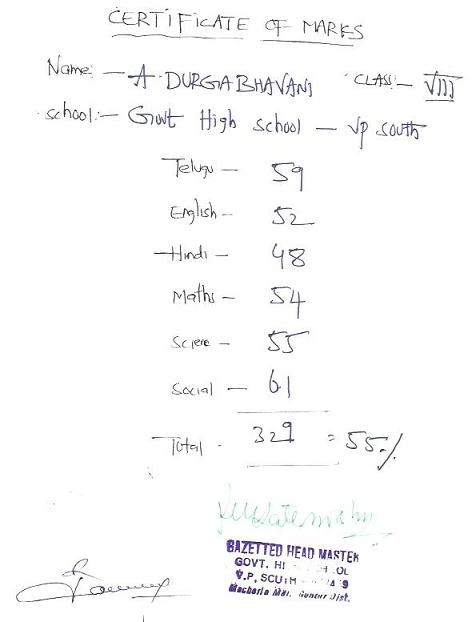 CERTIFICATE OF MARKS
Name:- A DURGABHAVANI CLASS:- VIII
School:- Govt High school - VP south
Telugu - 59
English - 52
Hindi - 48
Maths - 54
Sciene - 55
Social - 61
Total - 329 = 55%
GAZETTED HEAD MASTER
GOVT. HI
V.P. SOUTH
Macherla Mdl. Guntur Dist.